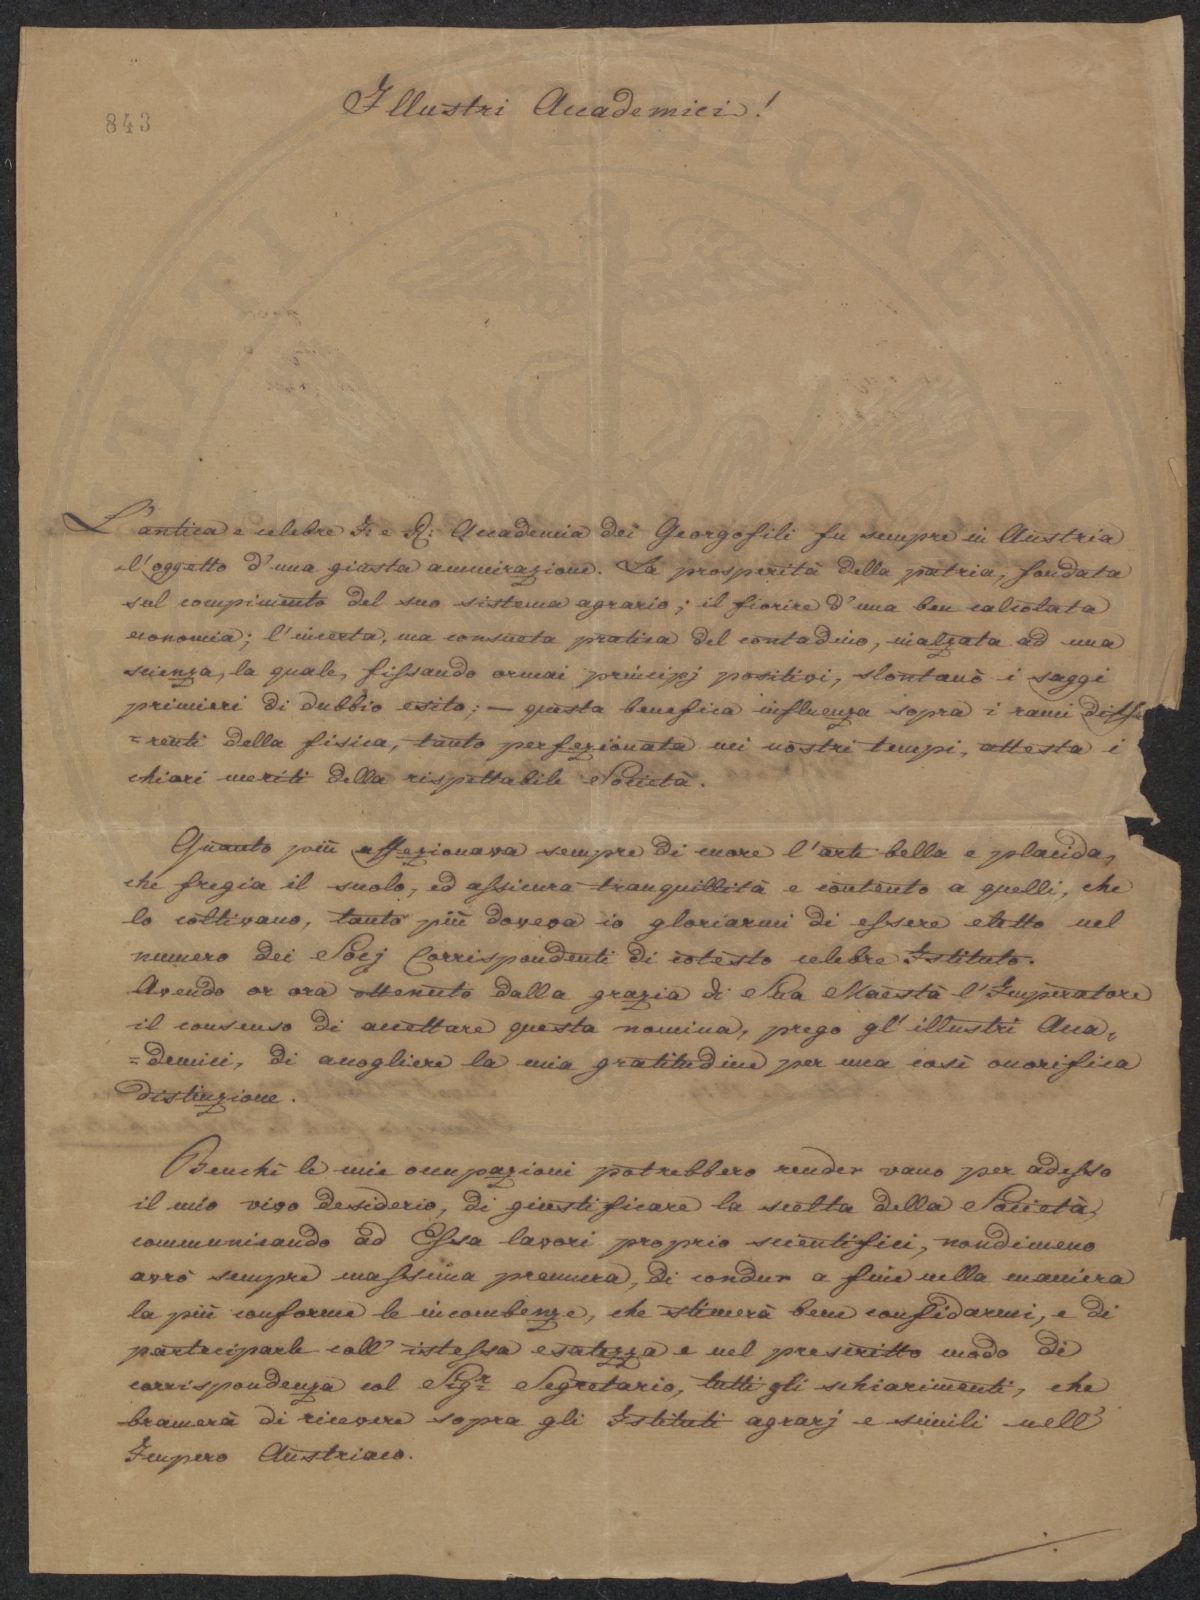 Illustri Accademici!
843
L'antica e celebre I: e R: Accademia dei Georgofili fu sempre in Austria
l'oggetto d'una giusta ammirazione. La prosperità della patria, fondata
sul compimento del suo sistema agrario; il fiorire d'una ben calcolata
economia; l'incerta, ma consueta pratica del contadino, inalzata ad una
scienza, la quale, fissando ormai principj positivi, slontanò i saggi
primieri di dubbio esito; — questa benefica influenza sopra i rami diffe
=renti della fisica, tanto perfezionata nei nostri tempi, attesta i
chiari meriti della rispettabile Società.
Quanto più affezionava sempre di cuore l'arte bella e placida,
che fregia il suolo, ed assicura tranquillità e contento a quelli, che
lo coltivano, tanto più doveva io gloriarmi di essere eletto nel
numero dei Socj Corrispondenti di cotesto celebre Istituto.
Avendo or ora ottenuto dalla grazia di Sua Maestà l'Imperatore
il consenso di accettare questa nomina, prego gl'illustri Acca,
=demici, di accogliere la mia gratitudine per una così onorifica
distinzione.
Benchè le mie occupazioni potrebbero render vano per adesso
il mio vivo desiderio, di giustificare la scelta della Società,
communicando ad Essa lavori proprio scientifici, nondimeno
avrò sempre massima premura, di condur a fine nella maniera
la più conforme le incombenze, che stimerà bene confidarmi, e di
parteciparle coll' istessa esatezza e nel prescritto modo di
corrispondenza col Sigr Segretario, tutti gli schiarimenti, che
bramerà di ricevere sopra gli Istituti agrarj e simili nell'
Impero Austriaco.